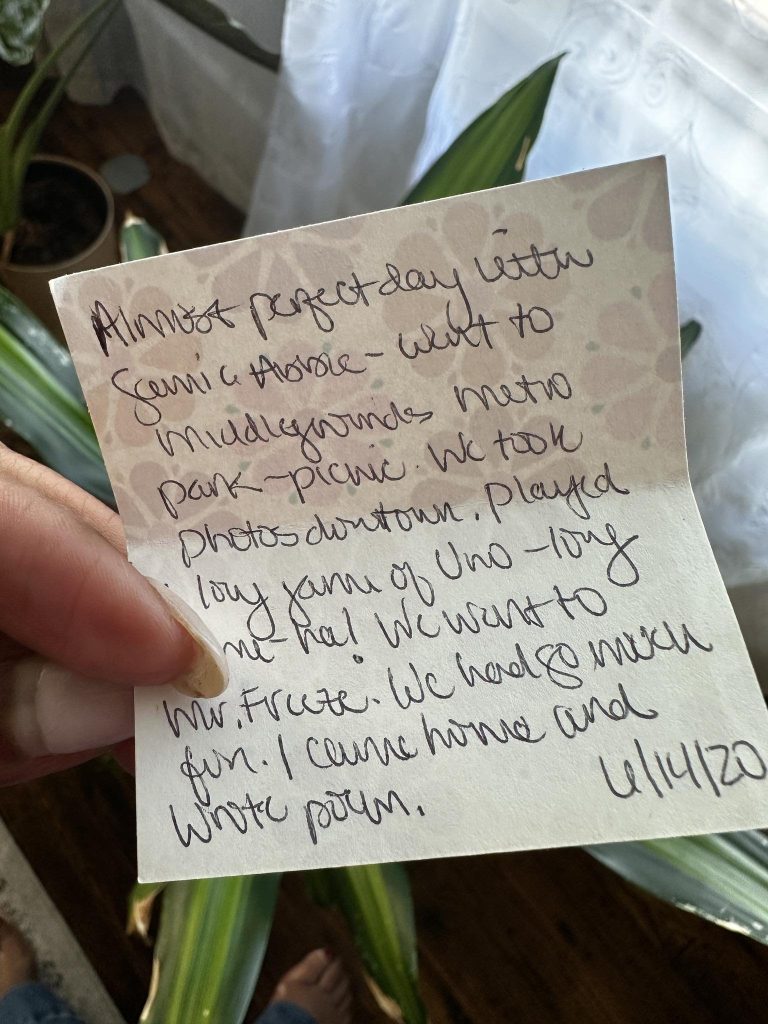 Almost perfect day with
- went to
Middlegrounds metro
park - picnic. We took
photos downtown. Played
long game of Uno - long
me - ha! We went to
Mr. Freeze. We had so much
fun. I came home and
wrote poem.
6/14/20